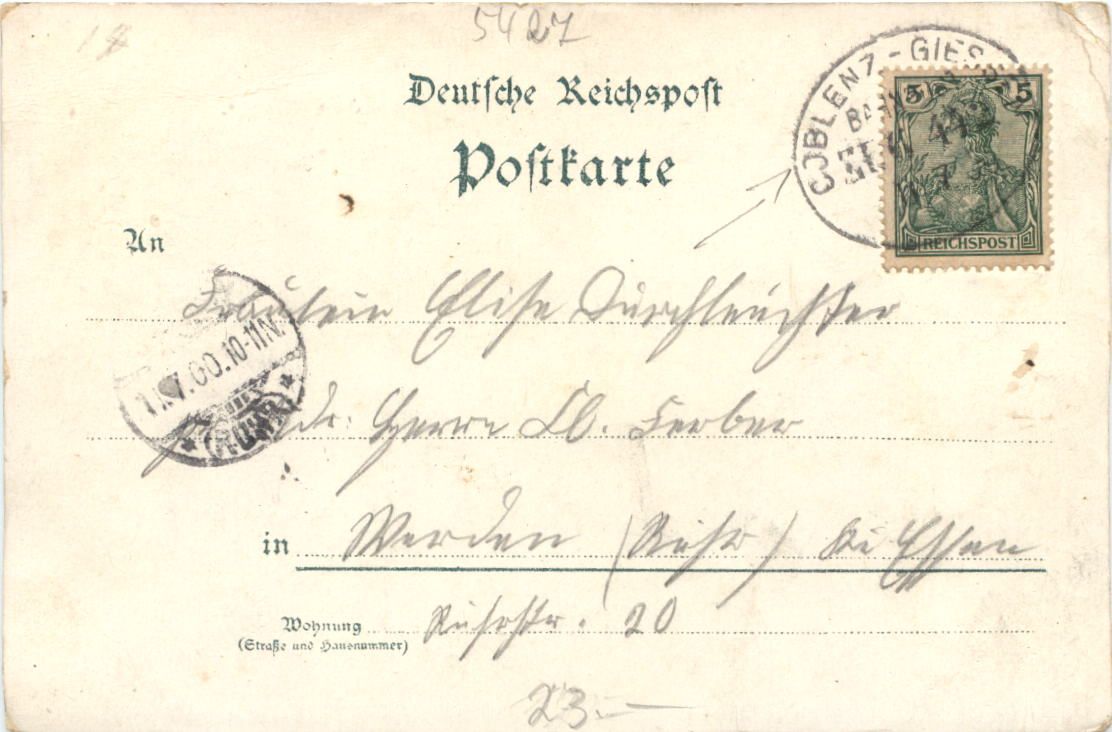 5427
18
Deutsche Reichspost
Postkarte
COBLENZ - GIES
BAHNPOST
ZUG 442
5 5
REICHSPOST
An
Fräulein Elise Durchleuchter
7.00.10-11N.
(RUHR)
Adr: Herrn Lb. Ferber
in Werden (Ruhr) bei Essen
Wohnung Ruhrstr. 20
(Straße und Hausnummer)
23.—